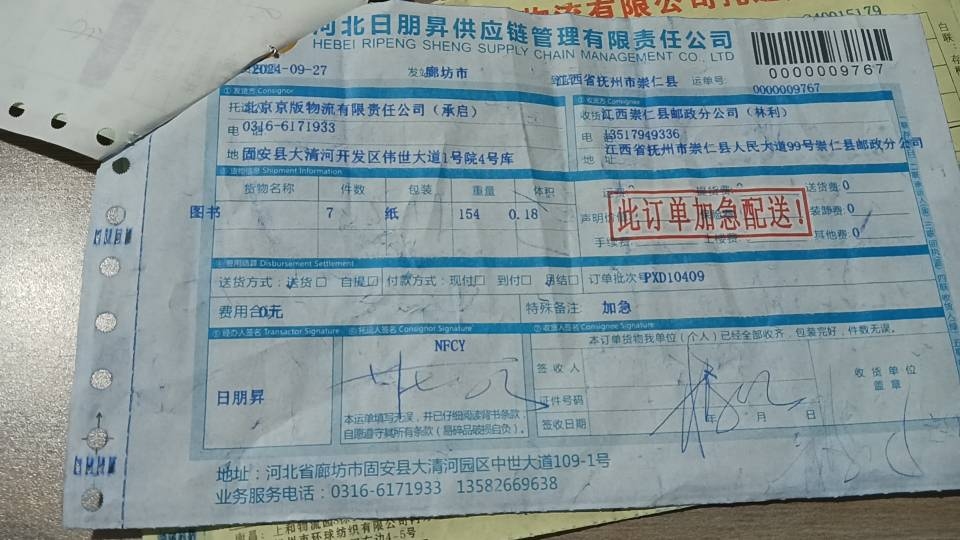 河北日朋昇供应链管理有限责任公司
HEBEI RIPENG SHENG SUPPLY CHAIN MANAGEMENT CO., LTD
0000009767
2024-09-27 发站 廊坊市 江西省抚州市崇仁县 运单号: 0000009767
①发货方 Consignor
托 北京京版物流有限责任公司（承启）
电 0316-6171933
地 固安县大清河开发区伟世大道1号院4号库
Consignee
收货 江西崇仁县邮政分公司（林利）
电 13517949336
地址 江西省抚州市崇仁县人民大道99号崇仁县邮政分公司
货物信息 Shipment Information
货物名称 件数 包装 重量 体积
图书 7 纸 154 0.18
送货费: 0
声明价值
装卸费: 0
手续费 其他费: 0
此订单加急配送!
费用结算 Disbursement Settlement
送货方式: 送货□ 自提□ 付款方式: 现付□ 到付□ 月结□ 订单批次号 PXD10409
费用合 0元 特殊备注: 加急
经办人签名 Transactor Signature 托运人签名 Consignor Signature 收货人签名 Consignee Signature
日朋昇
NFCY
本运单填写无误，并已仔细阅读背书条款，
自愿遵守其所有条款（易碎品破损自负）。
本订单货物我单位（个人）已经全部收齐，包装完好，件数无误。
签收人
证件号码
签收日期 年 月 日
收货单位
盖章
地址: 河北省廊坊市固安县大清河园区中世大道109-1号
业务服务电话: 0316-6171933 13582669638